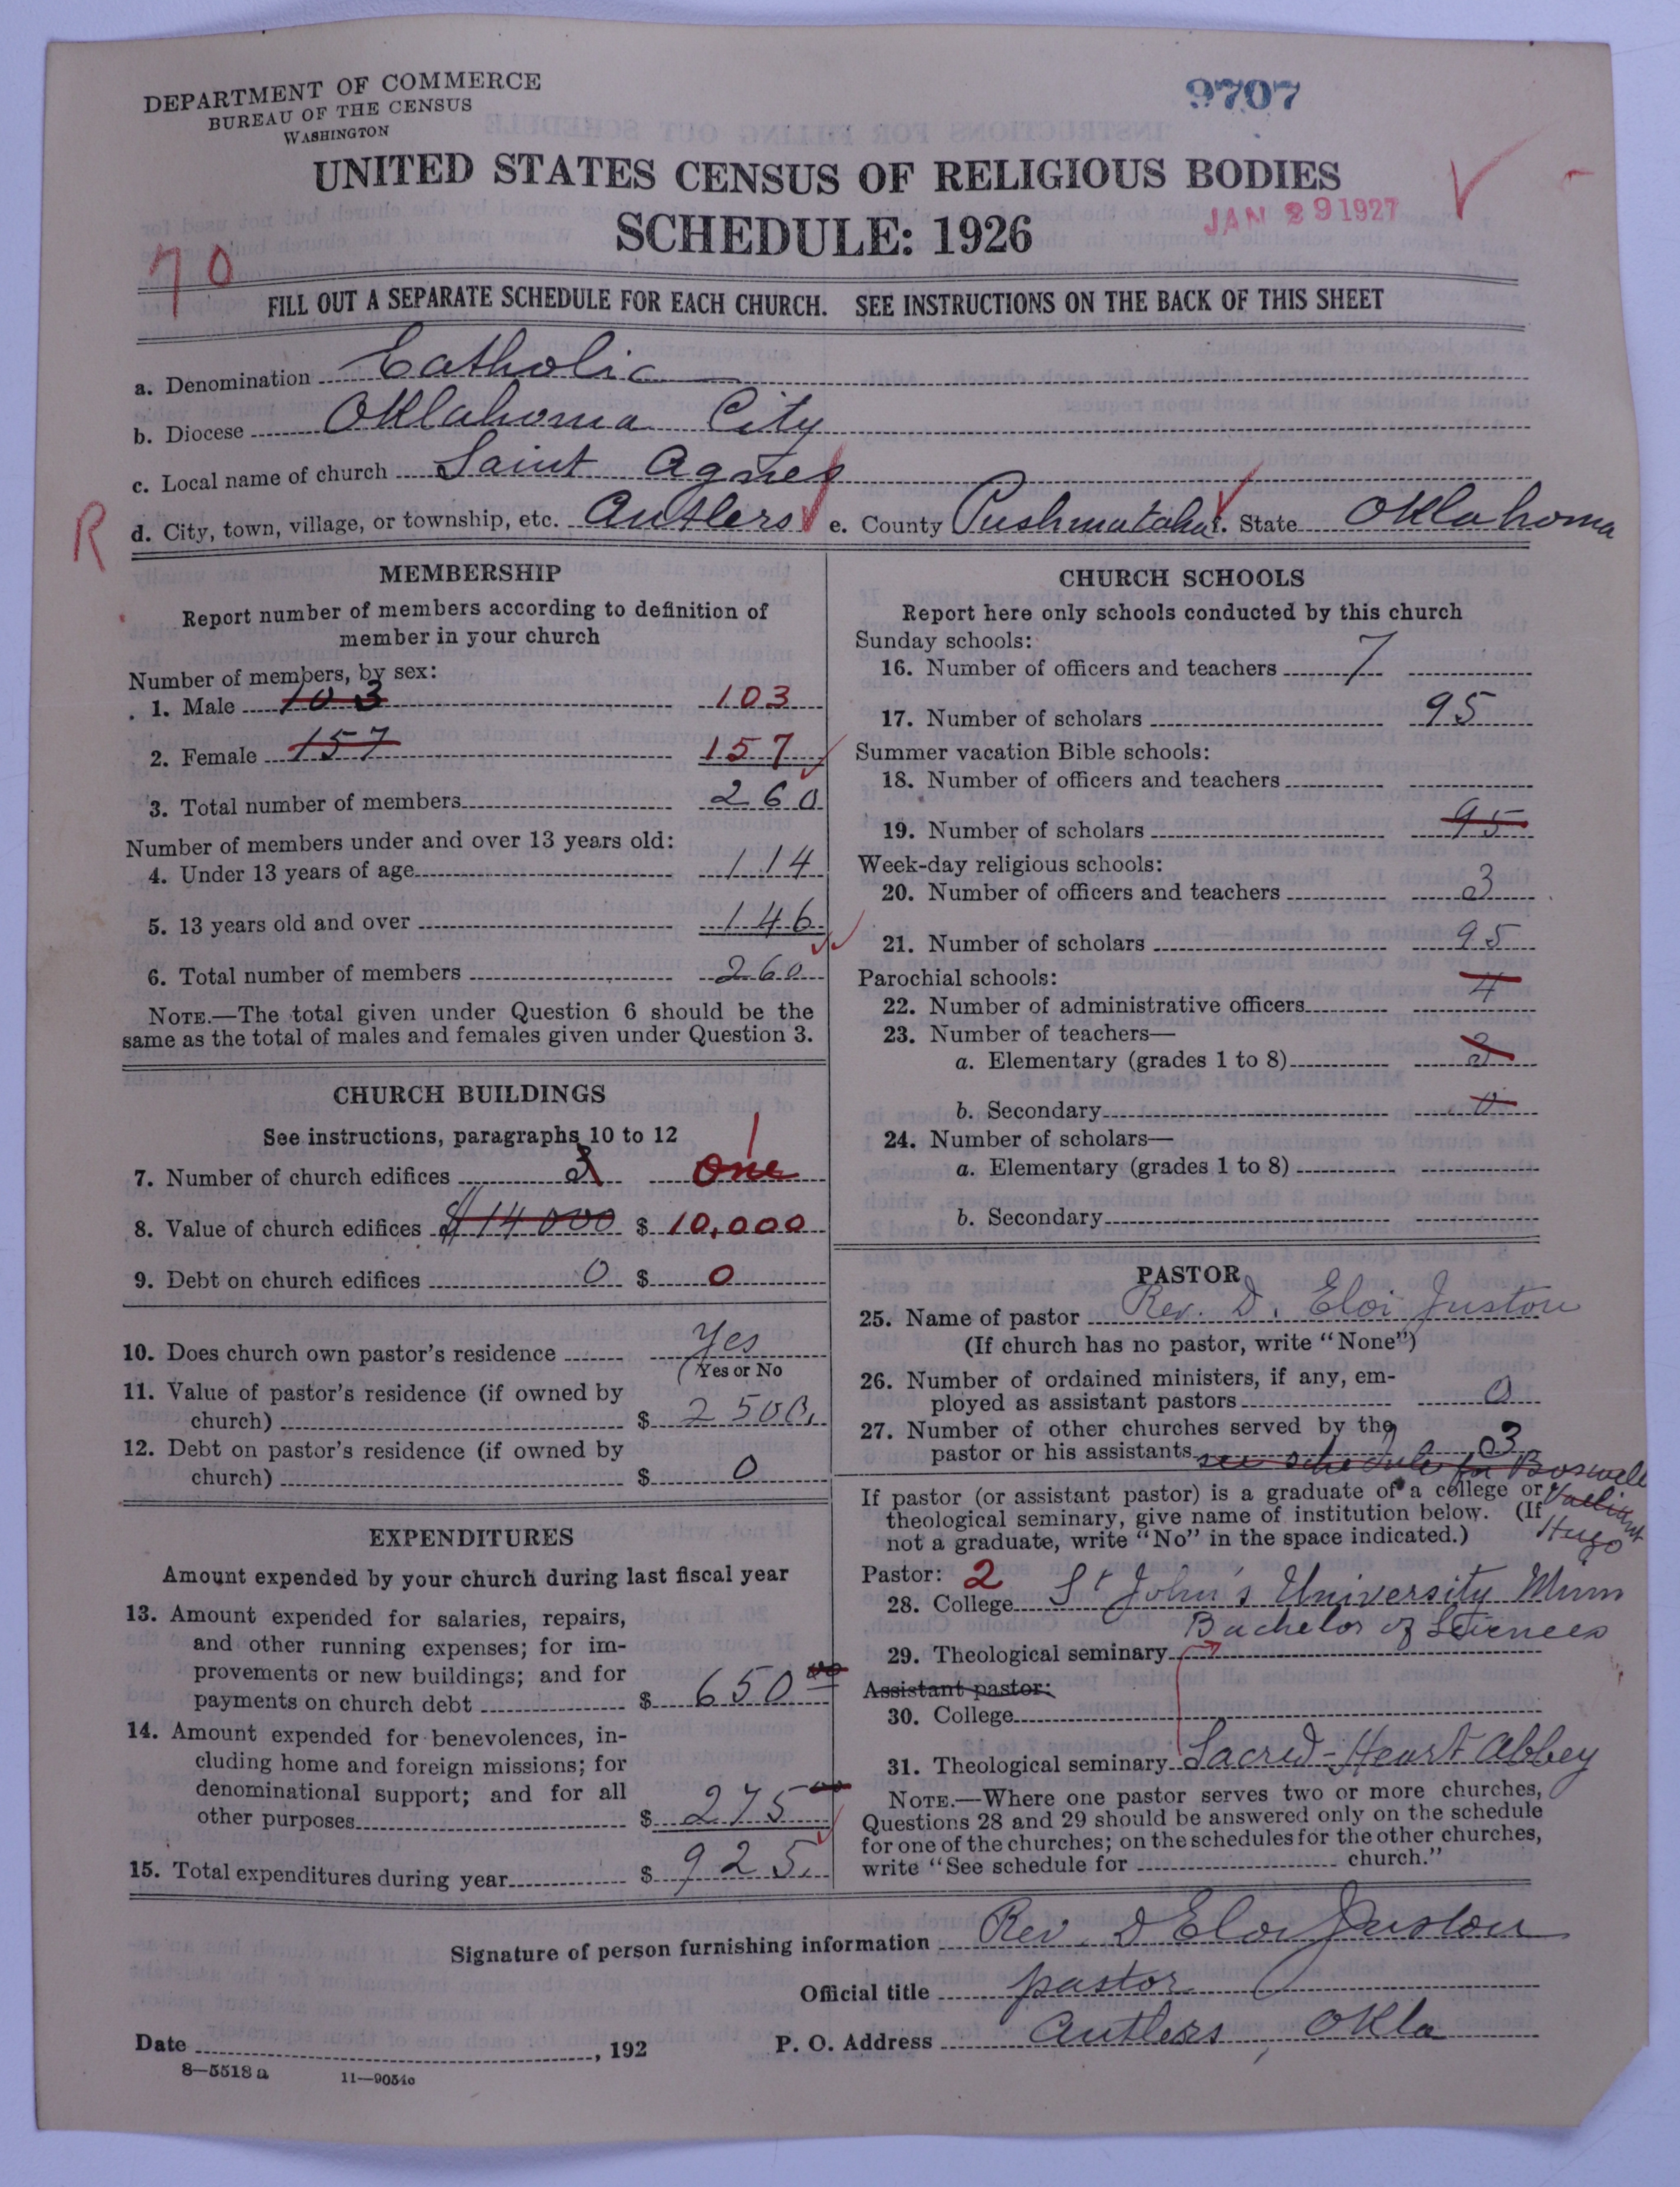 DEPARTMENT OF COMMERCE
BUREAU OF THE CENSUS
WASHINGTON
9707
UNITED STATES CENSUS OF RELIGIOUS BODIES
SCHEDULE: 1926
JAN 29 1927
70
FILL OUT A SEPARATE SCHEDULE FOR EACH CHURCH. SEE INSTRUCTIONS ON THE BACK OF THIS SHEET
a. Denomination Catholic
b. Diocese Oklahoma City
c. Local name of church Saint Agnes
R
d. City, town, village, or township, etc. Antlers e. County Pushmataha f. State Oklahoma
MEMBERSHIP
Report number of members according to definition of
member in your church
Number of members, by sex:
1. Male 103 103
2. Female 157 157
3. Total number of members 260
Number of members under and over 13 years old:
4. Under 13 years of age 114
5. 13 years old and over 146
6. Total number of members 260
NOTE.—The total given under Question 6 should be the
same as the total of males and females given under Question 3.
CHURCH BUILDINGS
See instructions, paragraphs 10 to 12
1
7. Number of church edifices One
8. Value of church edifices $14000 $ 10,000
9. Debt on church edifices 0 $ 0
10. Does church own pastor's residence Yes
(Yes or No
11. Value of pastor's residence (if owned by
church) $ 2500.
12. Debt on pastor's residence (if owned by
church) $ 0
EXPENDITURES
Amount expended by your church during last fiscal year
13. Amount expended for salaries, repairs,
and other running expenses; for im-
provements or new buildings; and for
payments on church debt $ 650 00
14. Amount expended for benevolences, in-
cluding home and foreign missions; for
denominational support; and for all
other purposes $ 275 00
15. Total expenditures during year $ 925.
CHURCH SCHOOLS
Report here only schools conducted by this church
Sunday schools:
16. Number of officers and teachers 7
17. Number of scholars 95
Summer vacation Bible schools:
18. Number of officers and teachers
19. Number of scholars 95
Week-day religious schools:
20. Number of officers and teachers 3
21. Number of scholars 95
Parochial schools:
22. Number of administrative officers 4
23. Number of teachers—
a. Elementary (grades 1 to 8) 3
b. Secondary 0
24. Number of scholars—
a. Elementary (grades 1 to 8)
b. Secondary
PASTOR
25. Name of pastor Rev. D. Eloi Juston
(If church has no pastor, write "None")
26. Number of ordained ministers, if any, em-
ployed as assistant pastors 0
27. Number of other churches served by the
pastor or his assistants 3
see schedule for Boswell
Valliant
Hugo
If pastor (or assistant pastor) is a graduate of a college or
theological seminary, give name of institution below. (If
not a graduate, write "No" in the space indicated.)
Pastor: 2
28. College St John's University Minn
Bachelor of Sciences
29. Theological seminary
Assistant pastor:
30. College
31. Theological seminary Sacred-Heart Abbey
NOTE.—Where one pastor serves two or more churches,
Questions 28 and 29 should be answered only on the schedule
for one of the churches; on the schedules for the other churches,
write "See schedule for church."
Signature of person furnishing information Rev. D Eloi Juston
Official title pastor
Date , 192 P. O. Address Antlers, Okla
8—5518 a 11—9054c